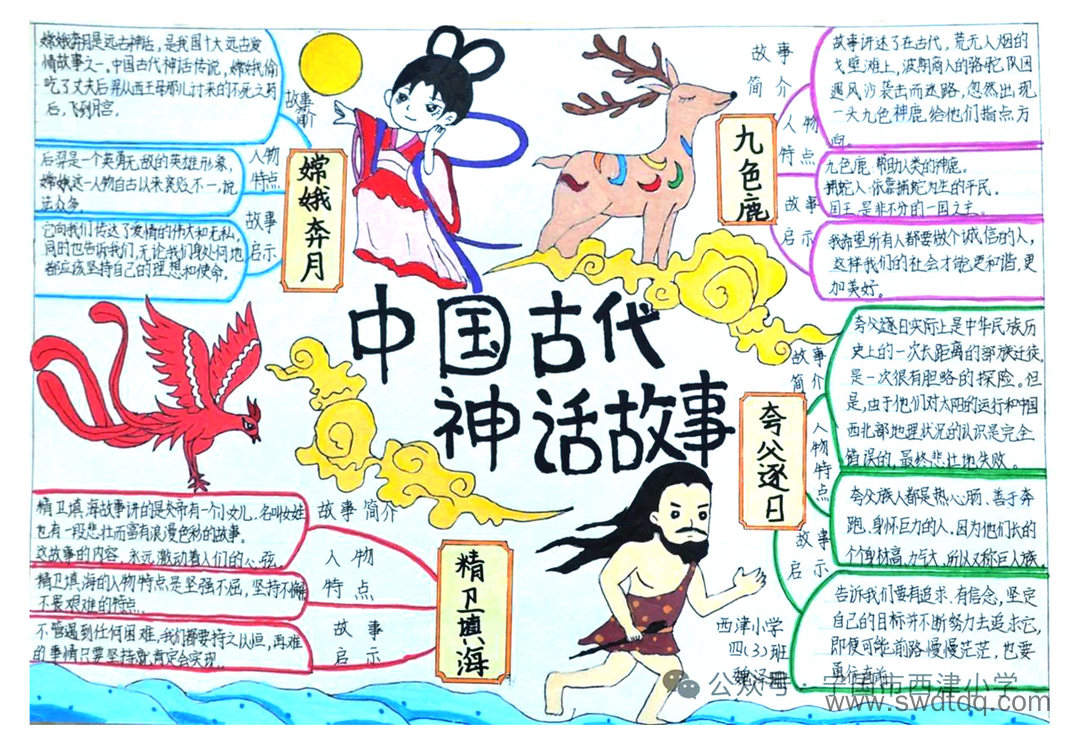 中国古代
神话故事
嫦娥奔月
故事
简介
嫦娥奔月是远古神话，是我国十大远古爱
情故事之一。中国古代神话传说，嫦娥偷
吃了丈夫后羿从西王母那儿讨来的不死之药
后，飞到月宫。
人物
特点
后羿是一个英勇无敌的英雄形象，
嫦娥这一人物自古以来褒贬不一，说
法众多。
故事
启示
它向我们传达了爱情的伟大和无私，
同时也告诉我们，无论我们身处何地
都应该坚持自己的理想和使命。
九色鹿
故事
简介
故事讲述了在古代，荒无人烟的
戈壁滩上，波斯商人的骆驼队因
遇风沙袭击而迷路，忽然出现
一头九色神鹿给他们指点方
向。
人物
特点
九色鹿：帮助人类的神鹿。
捕蛇人：依靠捕蛇为生的平民。
国王：是非不分的一国之主。
故事
启示
我希望所有人都要做个诚信的人，
这样我们的社会才能更和谐，更
加美好。
夸父逐日
故事
简介
夸父逐日实际上是中华民族历
史上的一次长距离的部族迁徙，
是一次很有胆略的探险。但
是，由于他们对太阳的运行和中国
西北部地理状况的认识是完全
错误的，最终悲壮地失败。
人物特点
夸父族人都是热心肠、善于奔
跑、身怀巨力的人。因为他们长的
个个身材高、力气大，所以又称巨人族。
故事
启示
告诉我们要有追求、有信念，坚定
自己的目标并不断努力去追求它，
即使可能前路慢慢茫茫，也要
勇往直前
精卫填海
故事简介
精卫填海故事讲的是炎帝有一个小女儿，名叫女娃
也有一段悲壮而富有浪漫色彩的故事。
这故事的内容，永远激动着人们的心弦。
人物
特点
精卫填海的人物特点是坚强不屈，坚持不懈
不畏艰难的特点。
故事
启示
不管遇到任何困难，我们都要持之以恒，再难
的事情只要坚持就肯定会实现。
西津小学
四(3)班
魏泽
公众号·宁国市西津小学
www.swdtdq.com